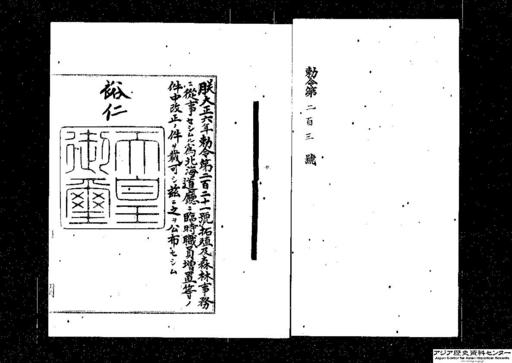 勅令第二百三號
朕大正六年勅令第二百二十一號拓殖及森林事務
ニ從事セシムル爲北海道廳ニ臨時職員增置等ノ
件中改正ノ件ヲ裁可シ茲ニ之ヲ公布セシム
裕仁
天皇
御璽
アジア歴史資料センター
Japan Center for Asian Historical Records